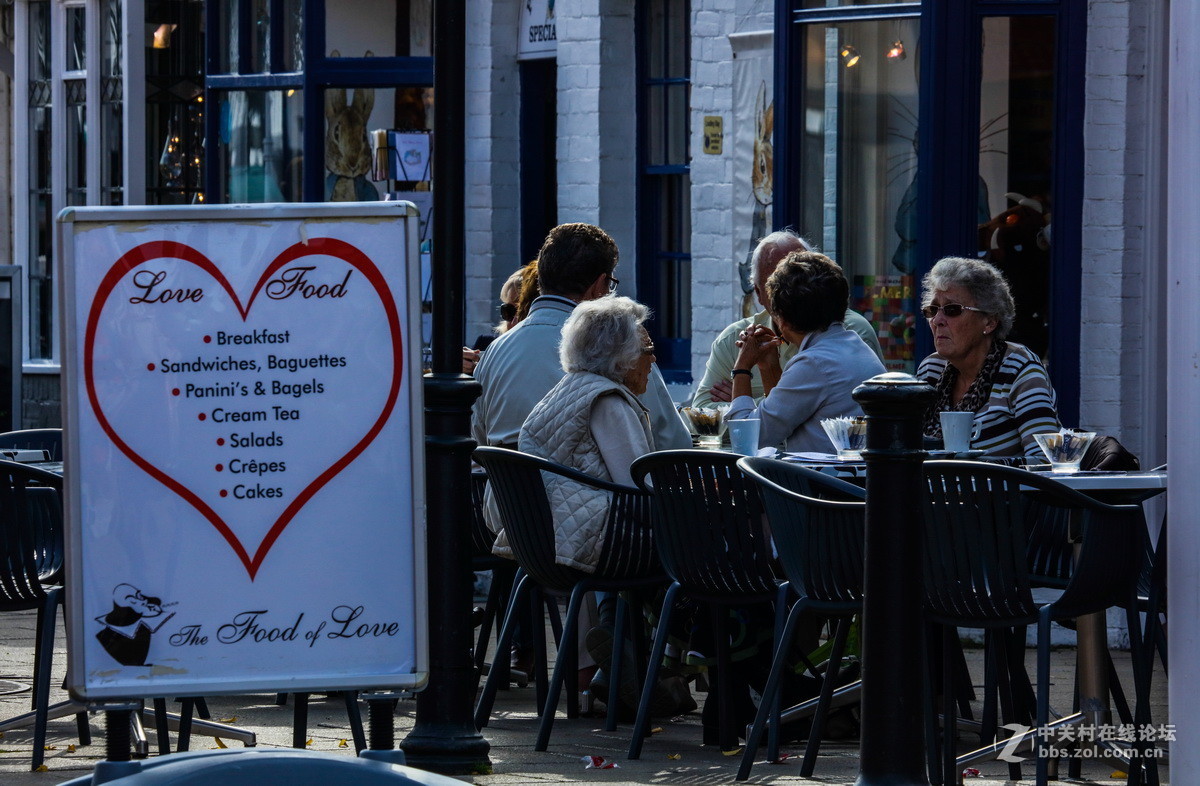 SPECIA
Love Food
• Breakfast
• Sandwiches, Baguettes
• Panini's & Bagels
• Cream Tea
• Salads
• Crêpes
• Cakes
The Food of Love
中关村在线论坛
bbs.zol.com.cn